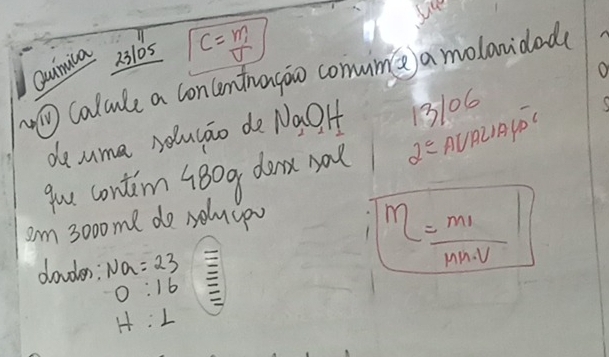 Química 23/05 C = m/V
IV) Calcule a concentração comum e a molaridade
de uma solução de NaOH
que contém 480g desse sal
em 3000ml de solução
dados: Na = 23
O : 16
H : 1
13/06
2ª AVALIAÇÃO
M = m1/MM.V